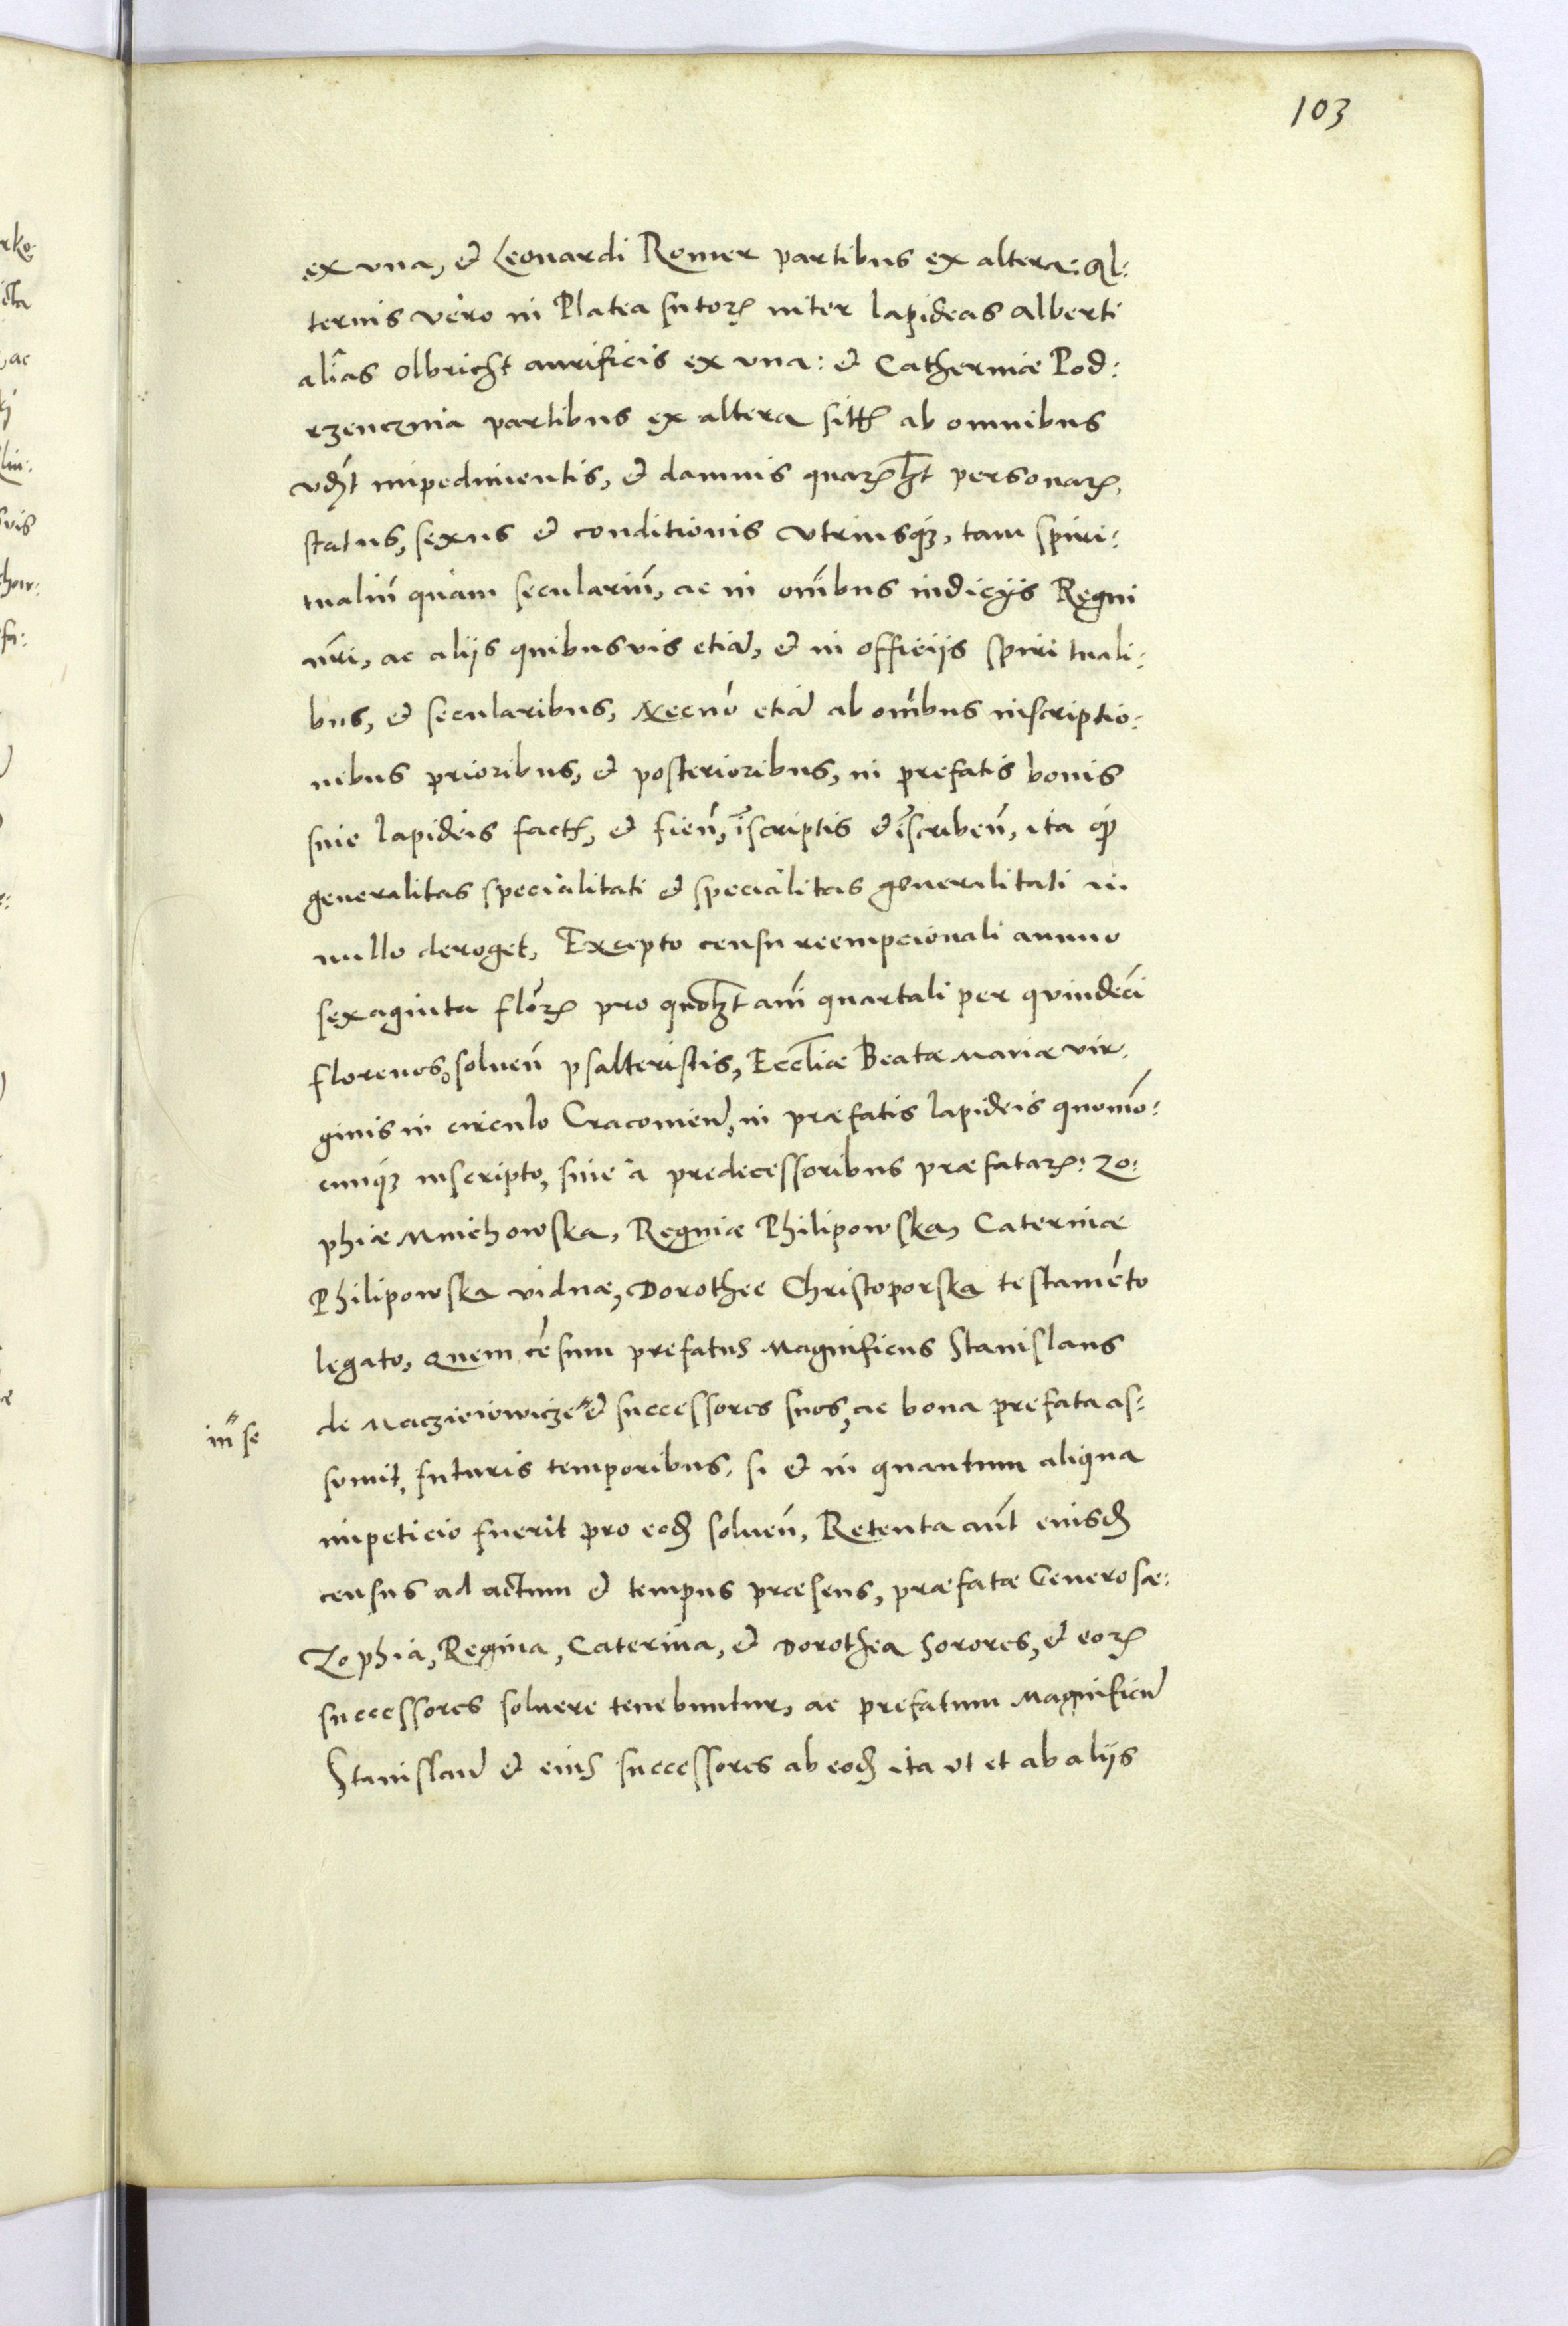 103
ex vna, et Leonardi Romer partibus ex altera: Al:
terius vero in Platea sutorꝝ inter lapideas Alberti
alias̄ Olbricht aurificis ex vna: et Catherinæ Pod:
rzencznia partibus ex altera sitꝭ ab omnibus
vdꝫt impedimentis, et damnis quarꝝlibꝫt personarꝝ
status, sexus et conditionis vtriusqꝫ, tam spiri:
tualiū quam seculariū, ac in oībus iudicijs Regni
nr̄i, ac aliis quibusvis etiā, et in officiis spirituali:
bus, et secularibus, Necnō etiā ab oībus inscriptio:
nibus prioribus, et posterioribus, in prefatis bonis
siue lapideis factꝭ, et fień, īscriptis et īscribeń, ita ꝙ
generalitas specialitati et specialitas generalitati in
nullo deroget, Excepto censu reempcionali annuo
sexaginta florꝝ pro quolꝫt anī quartali per quindecī
florenos, solueń psalteristis, Eccliæ Beatæ Mariæ vir:
ginis in circulo Cracouień, in præfatis lapideis quomō:
cunqꝫ inscripto, siue a predecessoribus præfatarꝝ: Zo:
phiæ Mnichowska, Reginæ Philipowska, Caterinæ
Philipowska viduæ, Dorothee Christoporska testamēto
legato, Quem cēsum prefatus Magnificus Stanislaus
de Maczieiowicze〃et successores suos, ac bona prefata as:
〃in se
sumit, futuris temporibus, si et in quantum aliqua
impeticio fuerit pro eodꝫ solueń, Retenta aūt eiusdꝫ
census ad actum et tempus præsens, præfatæ Generosæ:
Zophia, Regina, Caterina, et Dorothea Sorores, et eorꝝ
successores soluere tenebuntur, ac prefatum Magnificū
Stanislaū et eius successores ab eodꝫ ita vt et ab aliis